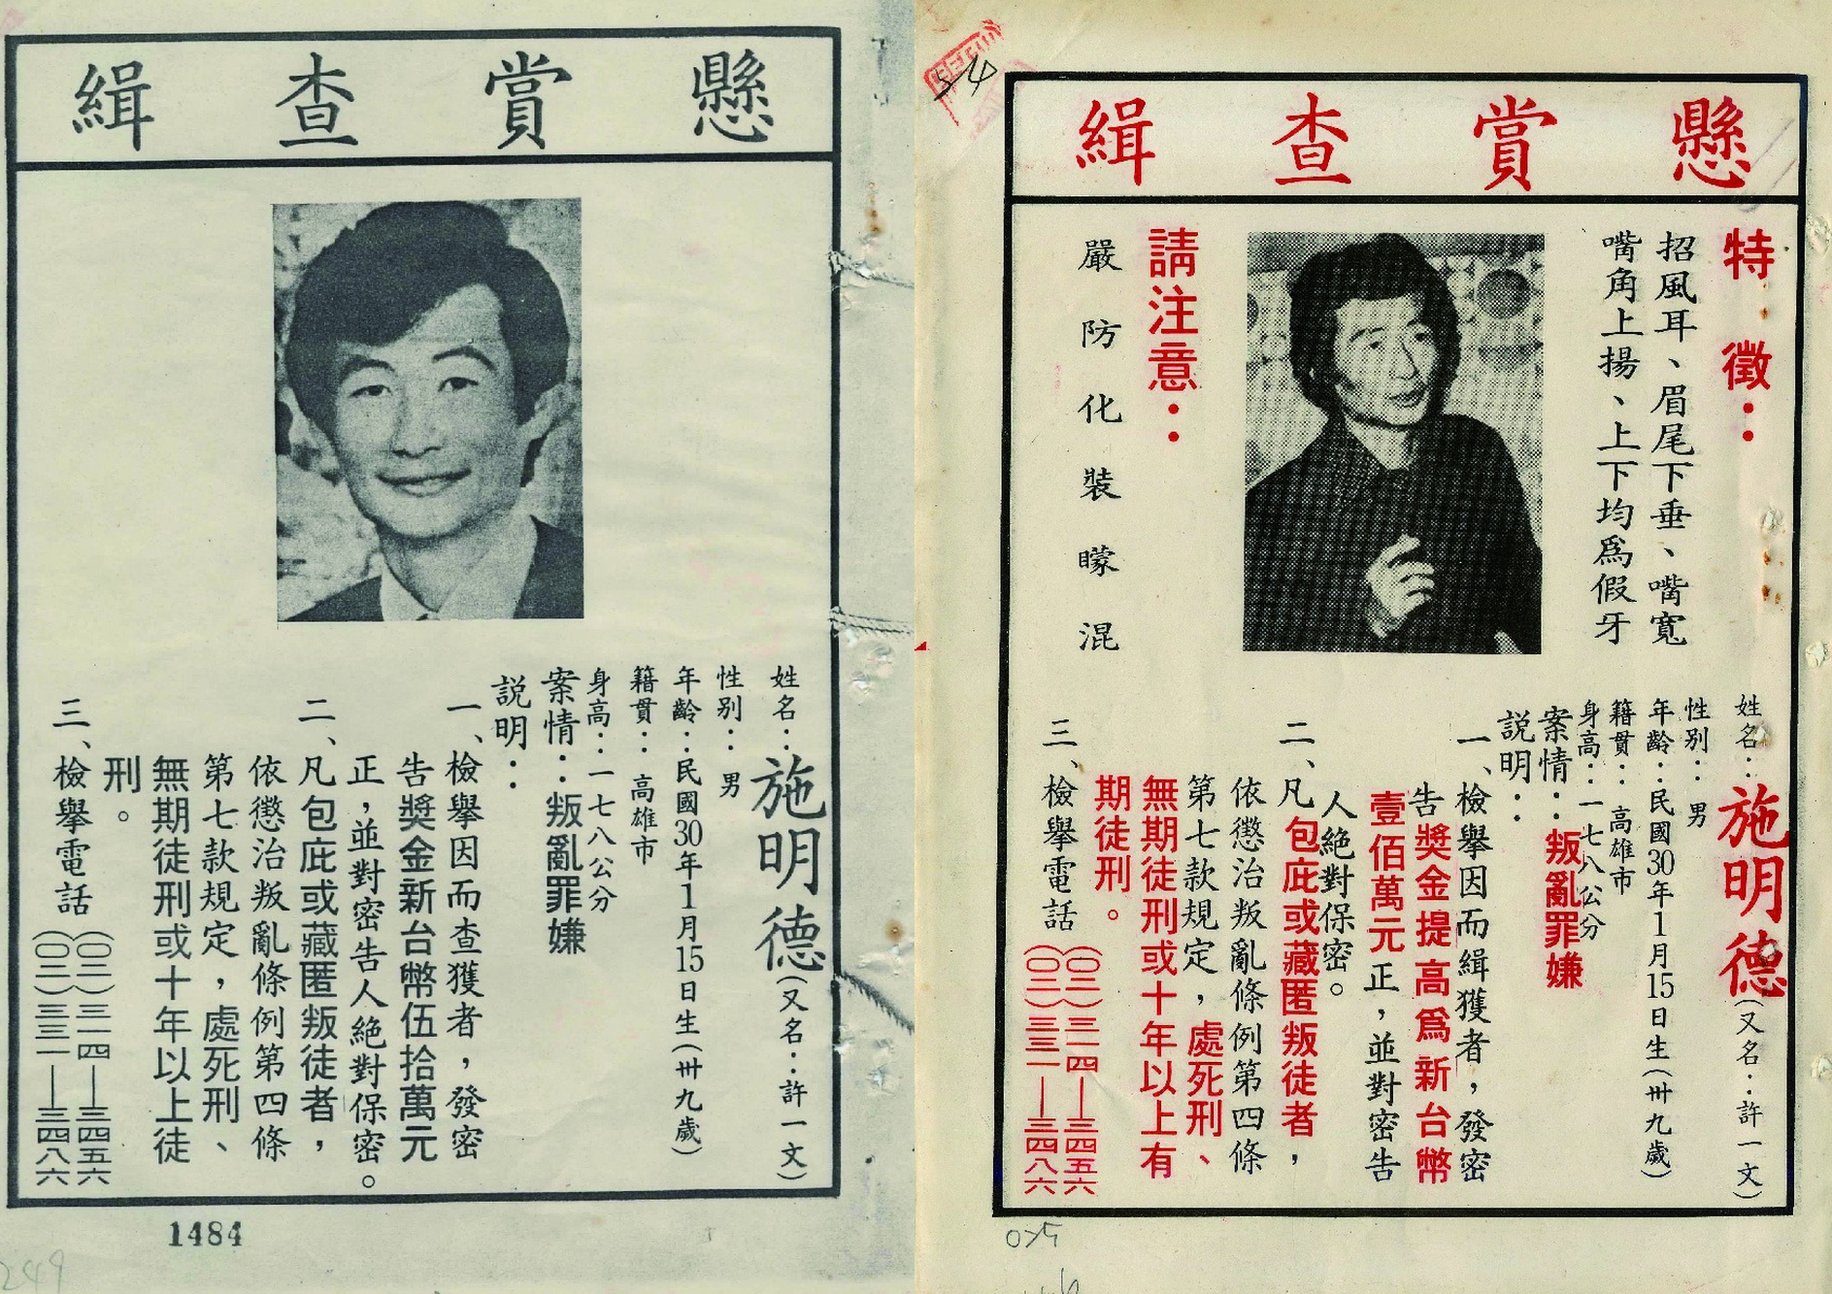 懸賞查緝
姓名：施明德（又名：許一文）
性別：男
年齡：民國30年1月15日生（卅九歲）
籍貫：高雄市
身高：一七八公分
案情：叛亂罪嫌
說明：
一、檢舉因而查獲者，發密
告獎金新台幣伍拾萬元
正，並對密告人絕對保密。
二、凡包庇或藏匿叛徒者，
依懲治叛亂條例第四條
第七款規定，處死刑、
無期徒刑或十年以上徒
刑。
三、檢舉電話（〇二）三一四—三四五六
（〇二）三三一—三四八六
1484
249
54
懸賞查緝
特徵：
招風耳、眉尾下垂、嘴寬
嘴角上揚、上下均為假牙
請注意：
嚴防化裝矇混
姓名：施明德（又名：許一文）
性別：男
年齡：民國30年1月15日生（卅九歲）
籍貫：高雄市
身高：一七八公分
案情：叛亂罪嫌
說明：
一、檢舉因而緝獲者，發密
告獎金提高為新台幣
壹佰萬元正，並對密告
人絕對保密。
二、凡包庇或藏匿叛徒者，
依懲治叛亂條例第四條
第七款規定，處死刑、
無期徒刑或十年以上有
期徒刑。
三、檢舉電話（〇二）三一四—三四五六
（〇二）三三一—三四八六